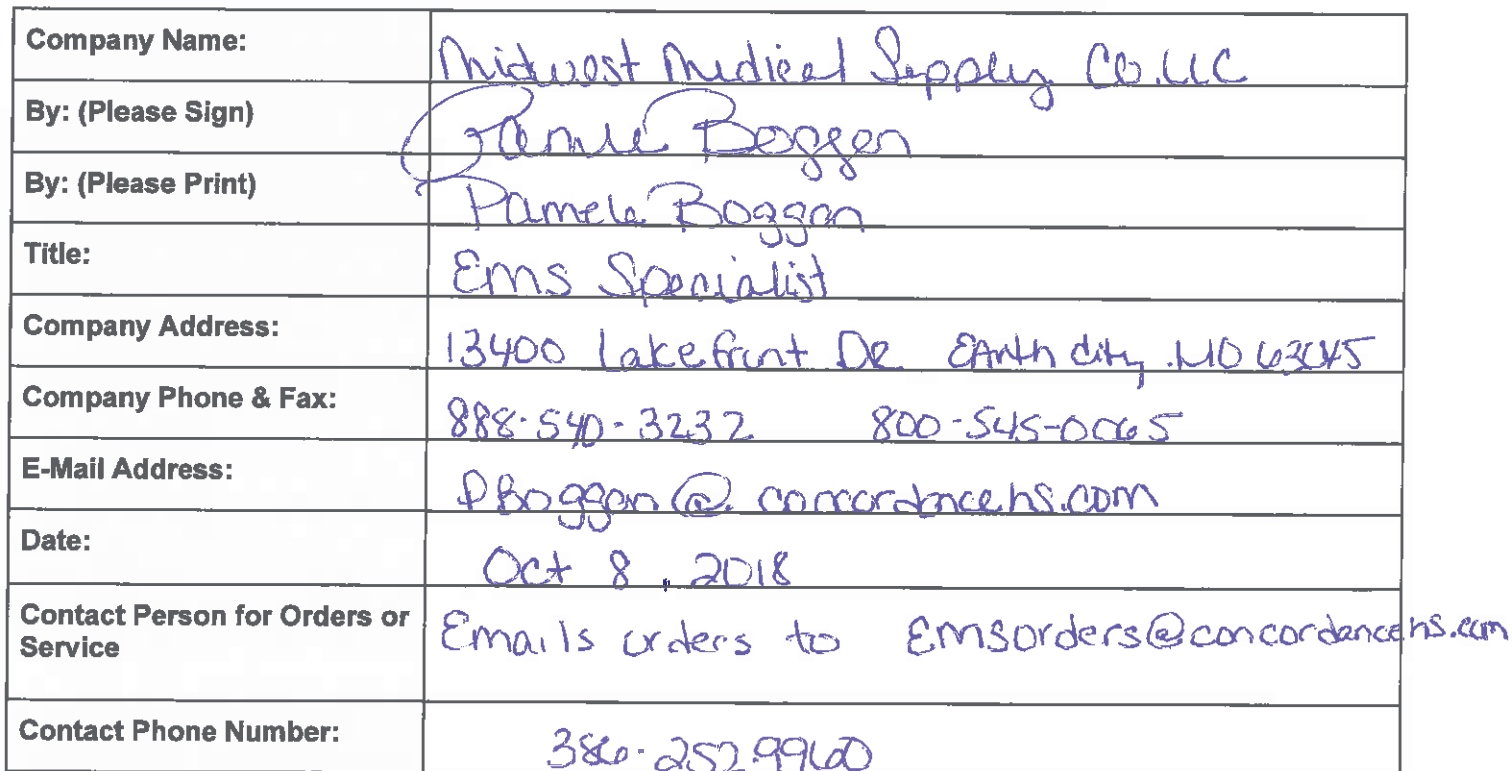 Company Name: Midwest Medical Supply CO. LLC
By: (Please Sign) Pamela Boggan
By: (Please Print) Pamela Boggan
Title: Ems Specialist
Company Address: 13400 Lakefront DR Earth city, MO 63045
Company Phone & Fax: 888-540-3232 800-545-0065
E-Mail Address: PBoggan@concordancehs.com
Date: Oct 8, 2018
Contact Person for Orders or Emails orders to Emsorders@concordancehs.com
Service
Contact Phone Number: 386-252-9960